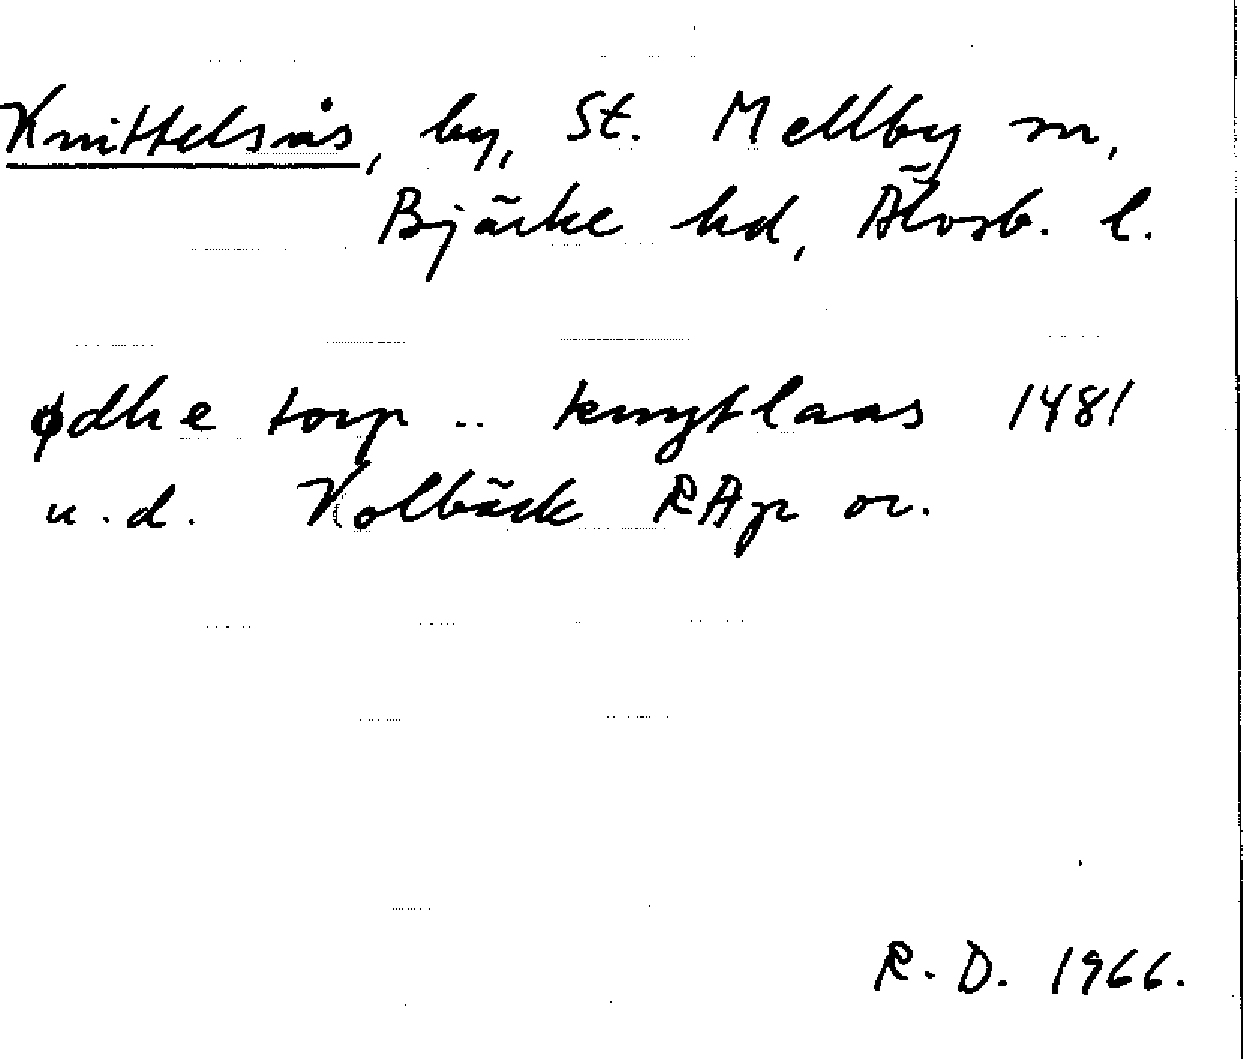 Knittelsås, by, St. Mellby sn,
Bjärke hd, Älvsb. l.
ødhe torp .. knytlaas 1481
u.d. Kolbäck RAp or.
R. D. 1966.